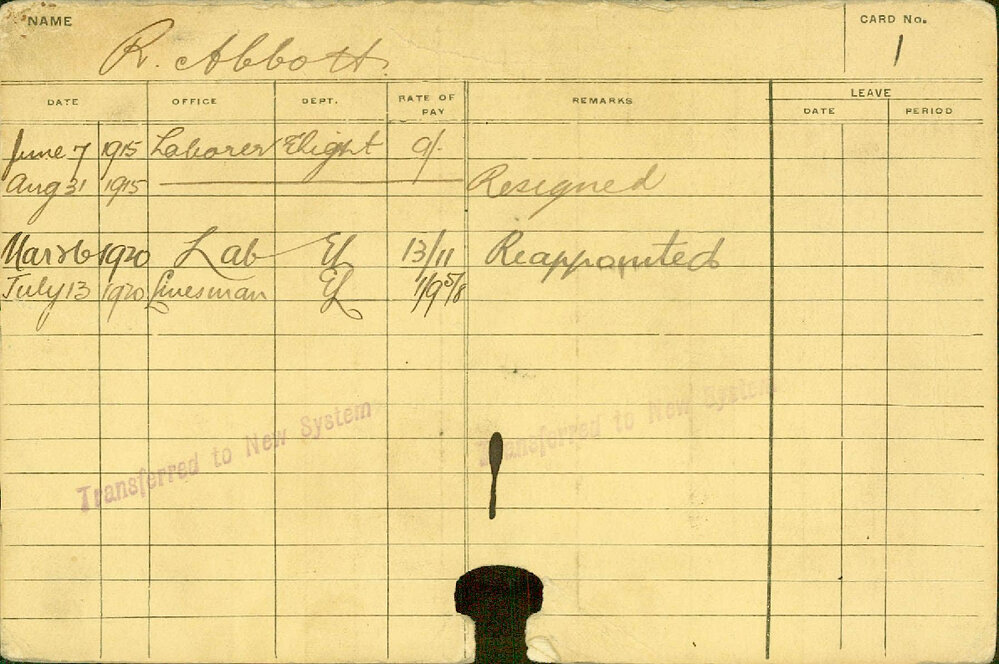 NAME
CARD No.
R. Abbott.
1
DATE OFFICE DEPT. RATE OF PAY REMARKS LEAVE
DATE PERIOD
June 7 1915 Laborer Elight 9/-
Aug 31 1915 Resigned
Mar 26 1920 Lab El 13/11 Reappointed
July 13 1920 Linesman El 1/9 5/8
Transferred to New System
Transferred to New System